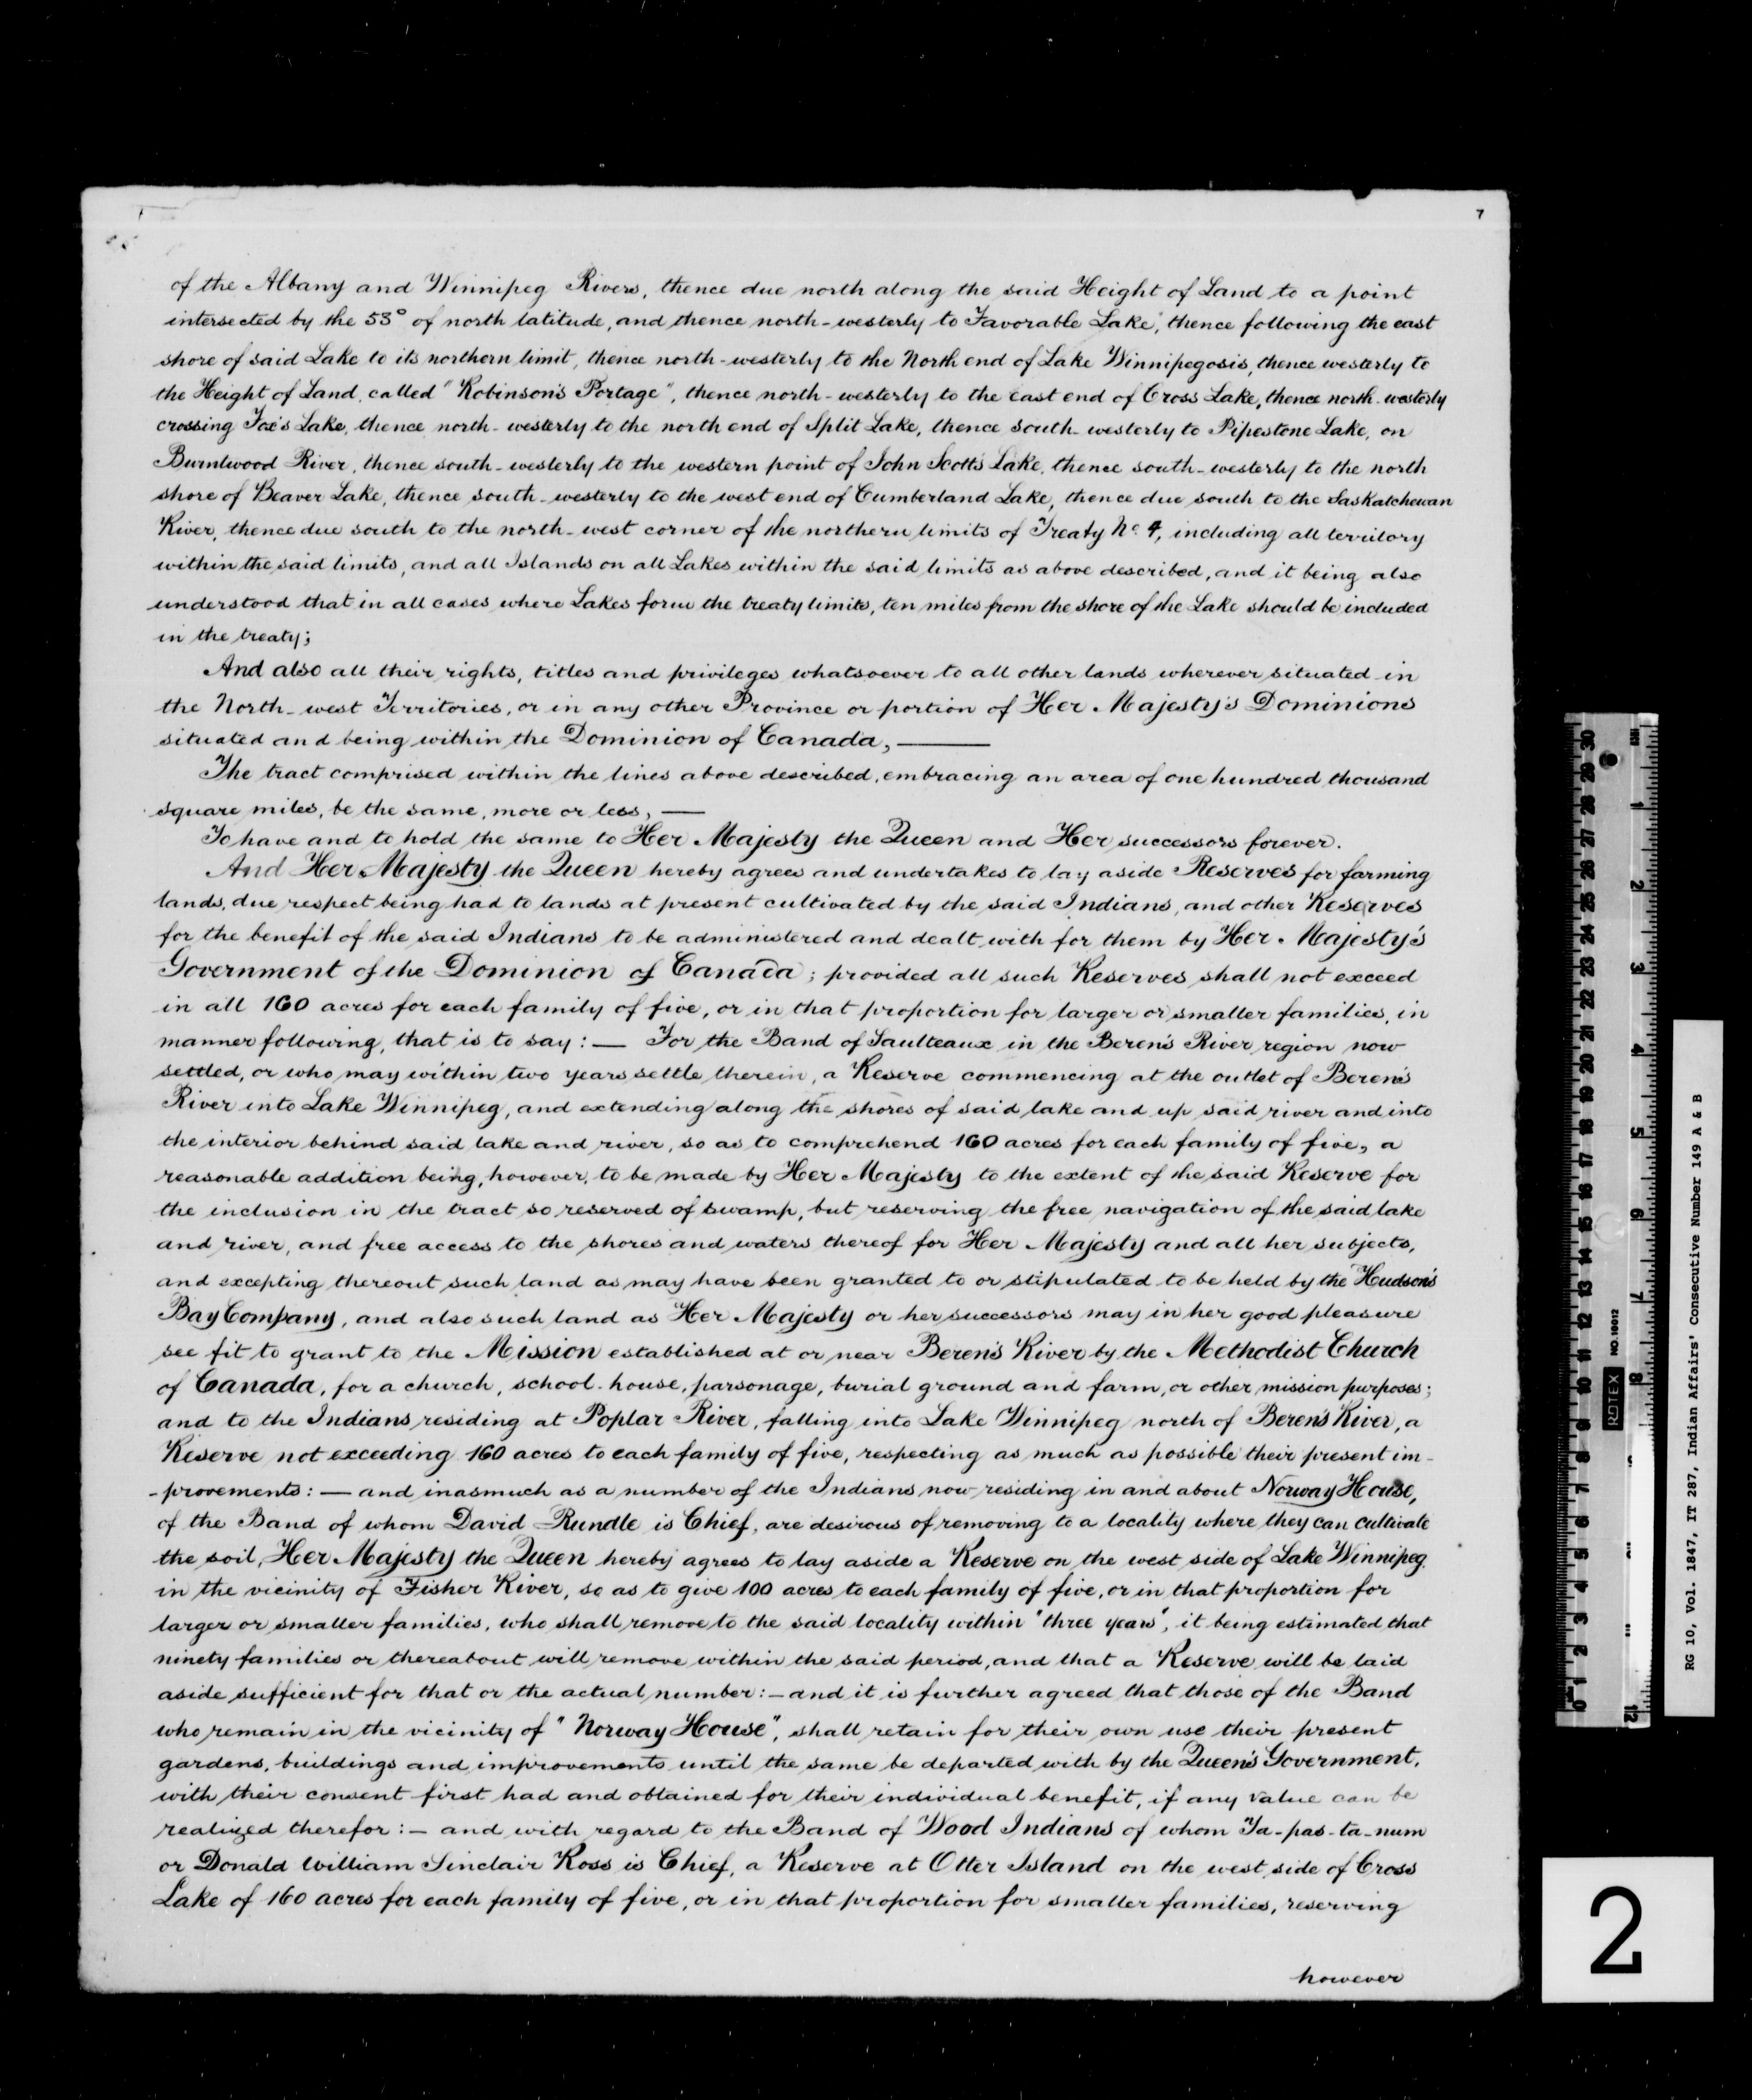 7
of the Albany and Winnipeg Rivers, thence due north along the said Height of Land to a point
intersected by the 53° of north latitude, and thence north-westerly to "Favorable Lake", thence following the east
shore of said Lake to its northern limit, thence north-westerly to the North end of Lake Winnipegosis, thence westerly to
the Height of Land, called "Robinson's Portage", thence north-westerly to the east end of Cross Lake, thence north-westerly
crossing Fox's Lake, thence north-westerly to the north end of Split Lake, thence south-westerly to Pipestone Lake, on
Burntwood River, thence south-westerly to the western point of John Scott's Lake, thence south-westerly to the north
shore of Beaver Lake, thence south-westerly to the west end of Cumberland Lake, thence due south to the Saskatchewan
River, thence due south to the north-west corner of the northern limits of Treaty No. 4, including all territory
within the said limits, and all Islands on all Lakes within the said limits as above described, and it being also
understood that in all cases where Lakes form the treaty limits, ten miles from the shore of the Lake should be included
in the treaty;
And also all their rights, titles and privileges whatsoever to all other lands wherever situated in
the North-west Territories, or in any other Province or portion of Her Majesty's Dominions
situated and being within the Dominion of Canada, —
The tract comprised within the lines above described, embracing an area of one hundred thousand
square miles, be the same, more or less, —
To have and to hold the same to Her Majesty the Queen and Her successors forever.
And Her Majesty the Queen hereby agrees and undertakes to lay aside Reserves for farming
lands, due respect being had to lands at present cultivated by the said Indians, and other Reserves
for the benefit of the said Indians to be administered and dealt with for them by Her Majesty's
Government of the Dominion of Canada; provided all such Reserves shall not exceed
in all 160 acres for each family of five, or in that proportion for larger or smaller families, in
manner following, that is to say: — For the Band of Saulteaux in the Beren's River region now
settled, or who may within two years settle therein, a Reserve commencing at the outlet of Beren's
River into Lake Winnipeg, and extending along the shores of said lake and up said river and into
the interior behind said lake and river, so as to comprehend 160 acres for each family of five, a
reasonable addition being, however, to be made by Her Majesty to the extent of the said Reserve for
the inclusion in the tract so reserved of swamp, but reserving the free navigation of the said lake
and river, and free access to the shores and waters thereof for Her Majesty and all her subjects,
and excepting thereout such land as may have been granted to or stipulated to be held by the Hudson's
Bay Company, and also such land as Her Majesty or her successors may in her good pleasure
see fit to grant to the Mission established at or near Beren's River by the Methodist Church
of Canada, for a church, school-house, parsonage, burial ground and farm, or other mission purposes;
and to the Indians residing at Poplar River, falling into Lake Winnipeg north of Beren's River, a
Reserve not exceeding 160 acres to each family of five, respecting as much as possible their present im-
-provements: — and inasmuch as a number of the Indians now residing in and about Norway House,
of the Band of whom David Rundle is Chief, are desirous of removing to a locality where they can cultivate
the soil, Her Majesty the Queen hereby agrees to lay aside a Reserve on the west side of Lake Winnipeg
in the vicinity of Fisher River, so as to give 100 acres to each family of five, or in that proportion for
larger or smaller families, who shall remove to the said locality within "three years", it being estimated that
ninety families or thereabout will remove within the said period, and that a Reserve will be laid
aside sufficient for that or the actual number: — and it is further agreed that those of the Band
who remain in the vicinity of "Norway House", shall retain for their own use their present
gardens, buildings and improvements until the same be departed with by the Queen's Government,
with their consent first had and obtained for their individual benefit, if any value can be
realized therefor: — and with regard to the Band of Wood Indians of whom Ta-pas-ta-num
or Donald William Sinclair Ross is Chief, a Reserve at Otter Island on the west side of Cross
Lake of 160 acres for each family of five, or in that proportion for smaller families, reserving
however
RG 10, Vol. 1847, IT 287, Indian Affairs' Consecutive Number 149 A & B
ROTEX
NO.10012
2